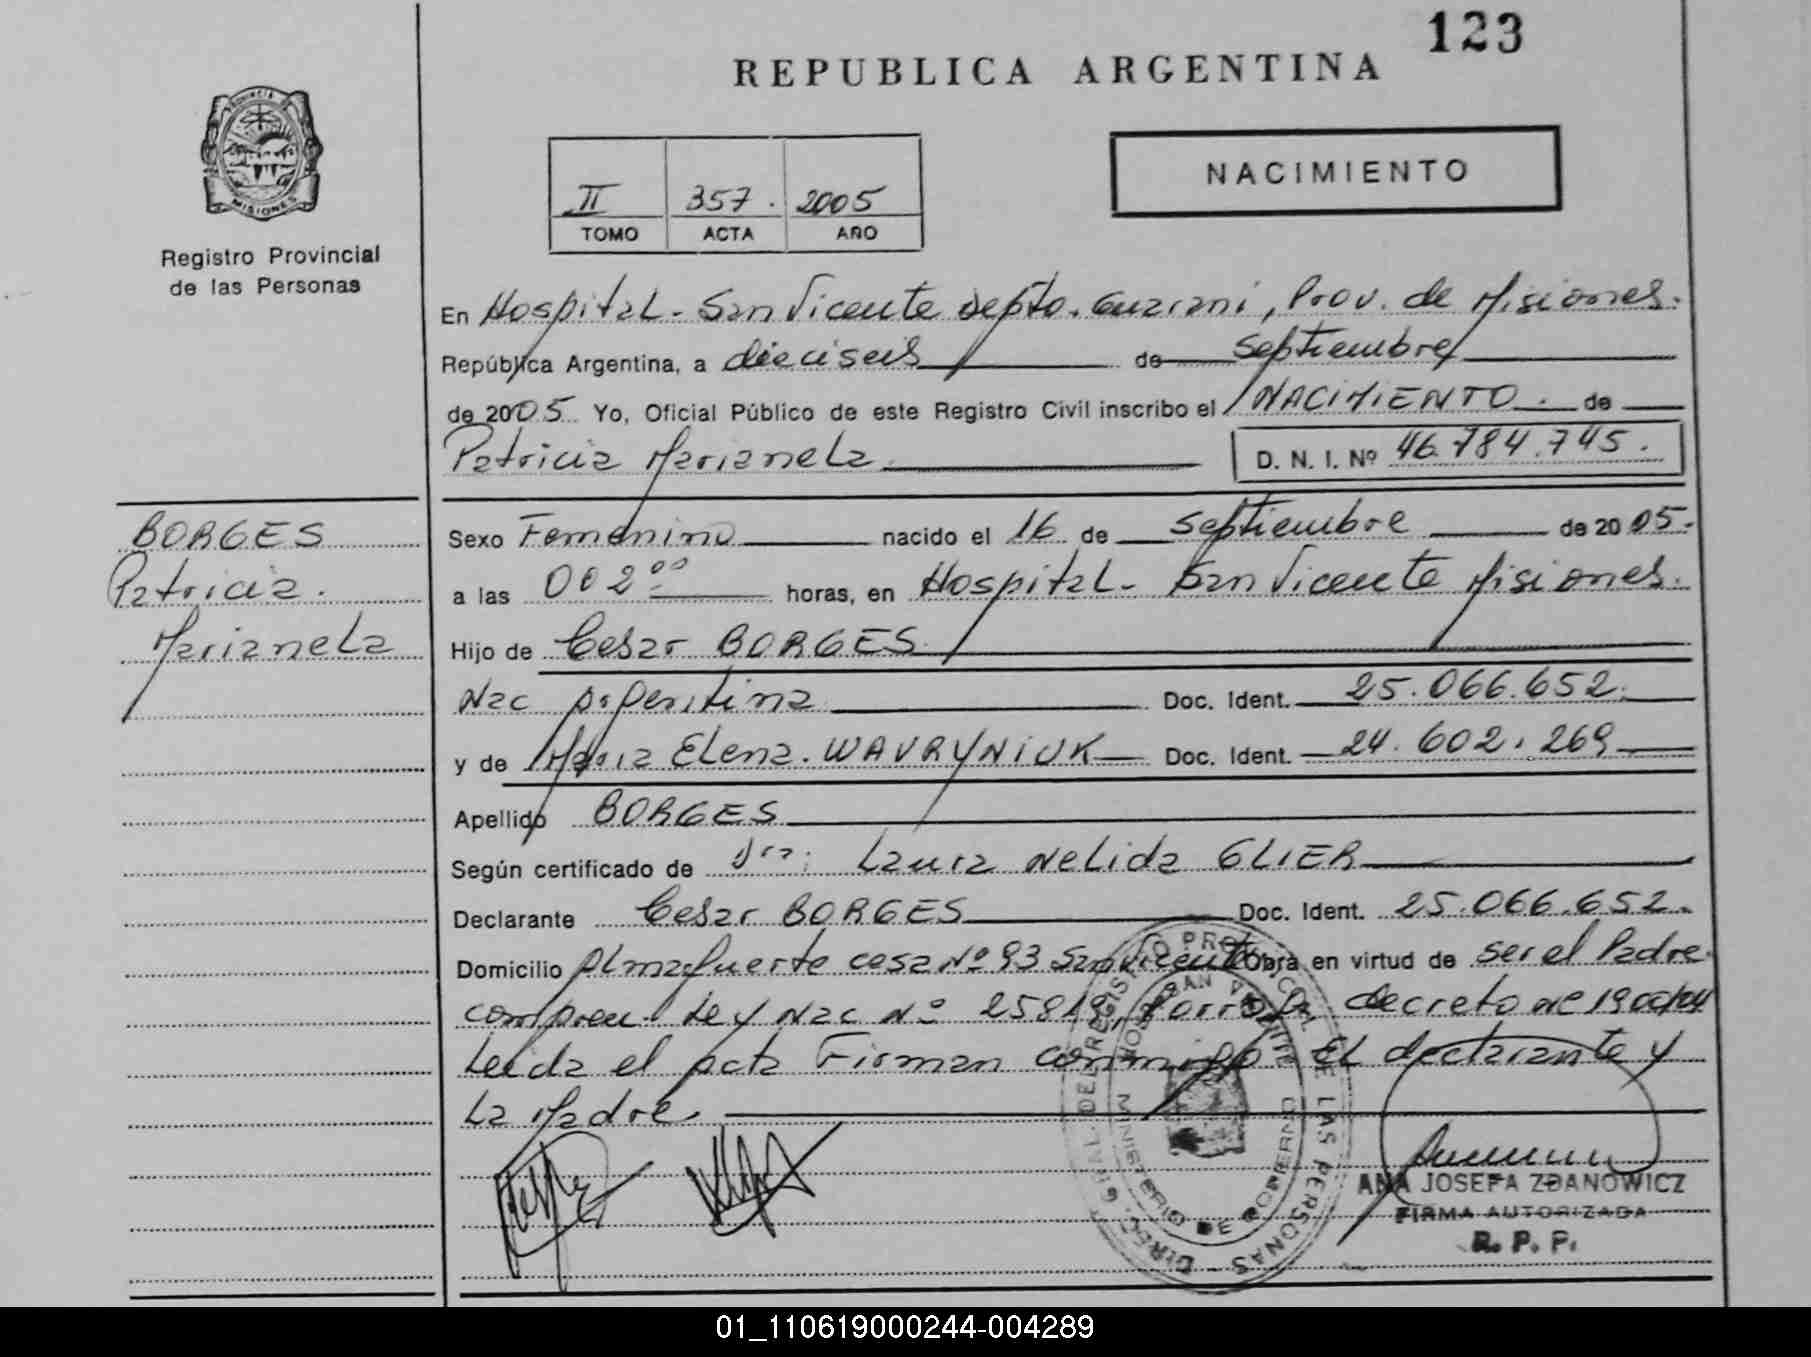 123
REPUBLICA ARGENTINA
PROVINCIA DE
MISIONES
NACIMIENTO
II 357. 2005
TOMO ACTA AÑO
Registro Provincial
de las Personas
En Hospital - San Vicente Depto. Guarani, Prov. de Misiones.
República Argentina, a dieciseis de Septiembre
de 2005 Yo, Oficial Público de este Registro Civil inscribo el NACIMIENTO. de
Patricia Marianela. D. N. I. Nº 46.784.745.
BORGES
Patricia.
Marianela
Sexo Femenino nacido el 16 de Septiembre de 2005.
a las 002⁰⁰ horas, en Hospital - San Vicente Misiones.
Hijo de Cesar BORGES
Nac Argentina Doc. Ident. 25.066.652.
y de Maria Elena. WAVRYNIUK Doc. Ident. 24.602.269
Apellido BORGES
Según certificado de Dra: Laura Nelida GLIER
Declarante Cesar BORGES Doc. Ident. 25.066.652.
Domicilio Almafuerte casa Nº 93 San Vicente Obra en virtud de ser el Padre.
Ley Nac Nº decreto
Leida el acta Firman conmigo El declarante y
La Madre
DIREC. GRAL. DEL REGISTRO PROVINCIAL DE LAS PERSONAS
MINISTERIO DE GOBIERNO
HOSP. SAN VICENTE
ANA JOSEFA ZDANOWICZ
FIRMA AUTORIZADA
R. P. P.
01_110619000244-004289